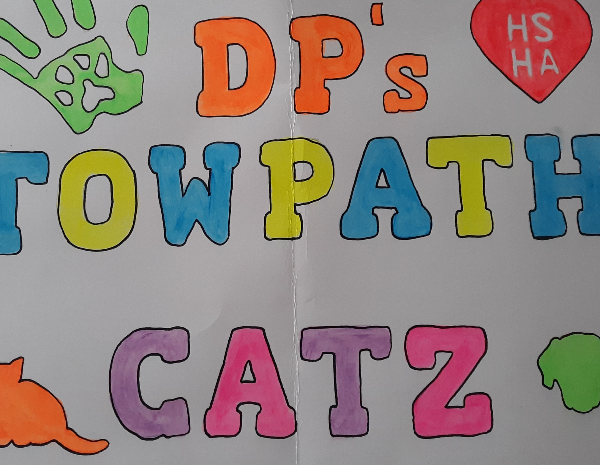 DP's
HS
HA
TOWPATH
CATZ